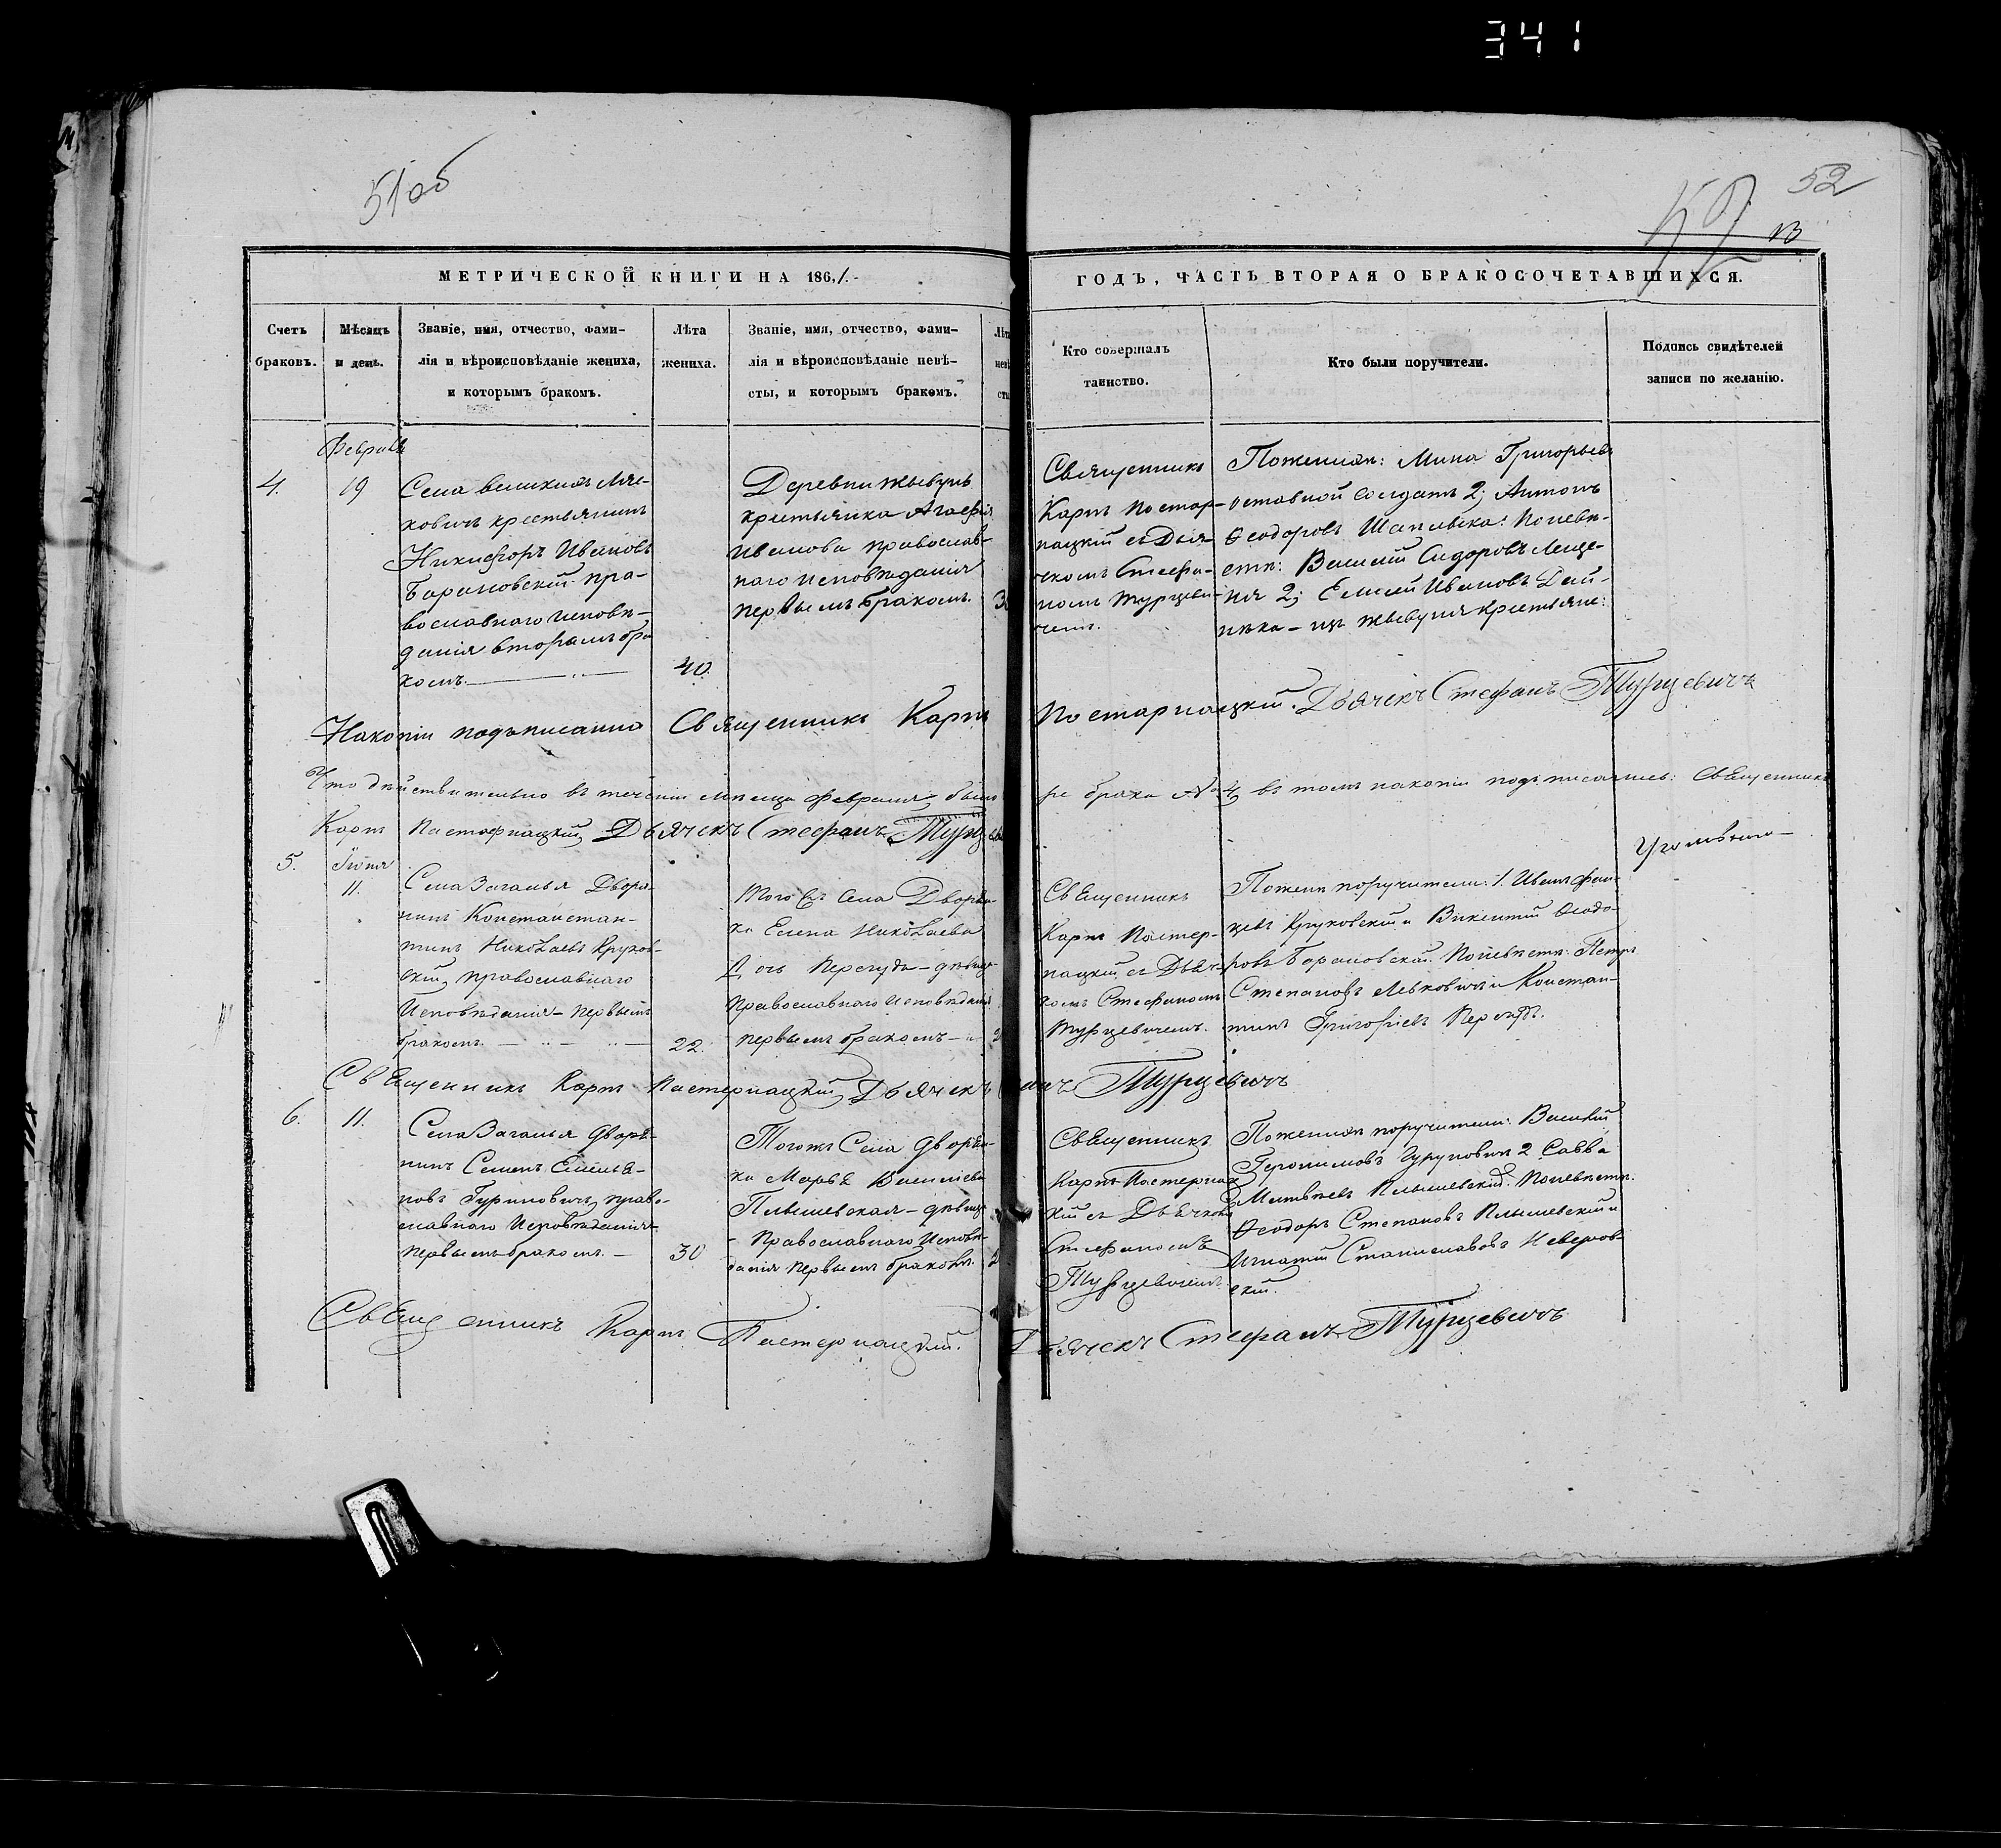 341
51об
52
52
13
МЕТРИЧЕСКОЙ КНИГИ НА 1861.
ГОДЪ, ЧАСТЬ ВТОРАЯ О БРАКОСОЧЕТАВШИХСЯ.
Счетъ
браковъ.
Мѣсяцъ
и день.
Званіе, имя, отчество, фами-
лія и вѣроисповѣданіе жениха,
и которымъ бракомъ.
Лѣта
жениха.
Званіе, имя, отчество, фами-
лія и вѣроисповѣданіе невѣ-
сты, и которымъ бракомъ.
Лѣта
невѣ
сты
Кто совершалъ
таинство.
Кто были поручители.
Подпись свидѣтелей
записи по желанію.
4.
Февраля
19
Села великихъ Ляс-
ковичъ крестьянинъ
Никифоръ Ивановъ
Барановскій пра-
вославнаго исповѣ-
данія вторымъ бра
комъ.
40.
Деревни
крестьянка Агафія
Иванова православ-
наго исповѣданія
первымъ бракомъ.
Священникъ
Карпъ Пастер-
нацкій съ Дья-
чкомъ Стефа-
номъ Турцеви-
чемъ.
Поженихѣ: Мина Григорьевъ
отставной солдатъ 2; Антонъ
Ѳеодоровъ Поневѣ-
стѣ: Василій Сидоровъ
2; Елисей Ивановъ Дай-
нека – изъ крестьяне:
Накопіи подписано Священникъ Карпъ
Пастарнацкій. Дьячекъ Стефанъ Турцевичъ
Что дѣйствительно въ теченіи мѣсяца февраля были
браки №4, въ томъ накопіи подписались: Священникъ
Карпъ Пастарнацкій, Дьячекъ Стефанъ Турцев
5.
Іюня
11.
Села Заганья Дворя-
нинъ Констанстан-
тинъ Николаевъ Круков-
скій, православнаго
Исповѣданія – первымъ
бракомъ.
22.
Того съ Села Дворян-
ка Елена Николаева
Дочь Перегудъ – дѣвица
Православнаго Исповѣданія
первымъ бракомъ –
Священникъ
Карпъ Пастер-
нацкій съ Дьяч-
комъ Стефаномъ
Турцевичемъ.
Поженихѣ поручители: 1. Иванъ Фран-
цевъ Круковскій и Викентій Ѳеодо-
ровъ Барановскій. Поневѣстѣ: Петръ
Степановъ Левковичъ и Констан-
тинъ Григорьевъ Перегудъ.
Священникъ Карпъ Пастернацкій, Дьячекъ
Турцевичъ
6.
11.
Села Заганья Дворя-
нинъ Семенъ Емелья-
новъ Гуриновичъ, право-
славнаго Исповѣданія
первымъ бракомъ. –
30
Тогожъ Села Дворян-
ка Марья Василіева
Плышевская – дѣвица
Православнаго Исповѣ-
данія первымъ бракомъ.
Священникъ
Карпъ Пастернац
кій съ Дьячкомъ
Стефаномъ
Турцевичемъ
Поженихѣ поручители: Василій
Іеронимовъ Гуриновичъ 2 Савва
Матвѣевъ Плышевскій. Поневѣстѣ:
Ѳеодоръ Степановъ Плышевскій и
Игнатій Станиславовъ Неверов-
скій.
Священникъ Карпъ Пастернацкій.
Дьячекъ Стефанъ Турцевичъ